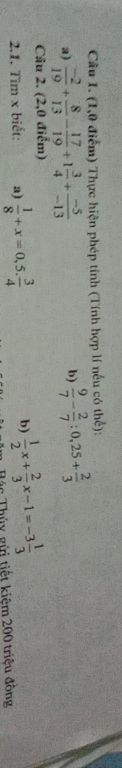 Câu 1. (1,0 điểm) Thực hiện phép tính (Tính hợp lí nếu có thể):
a) -2/19 + 8/13 - 17/19 + 1 3/4 + -5/-13 b) 9/7 - 2/7 : 0,25 + 2/3
Câu 2. (2,0 điểm)
2.1. Tìm x biết: a) 1/8 + x = 0,5. 3/4 b) 1/2 x + 2/3 x - 1 = -3 1/3
Bác Thúy gửi tiết kiệm 200 triệu đồng